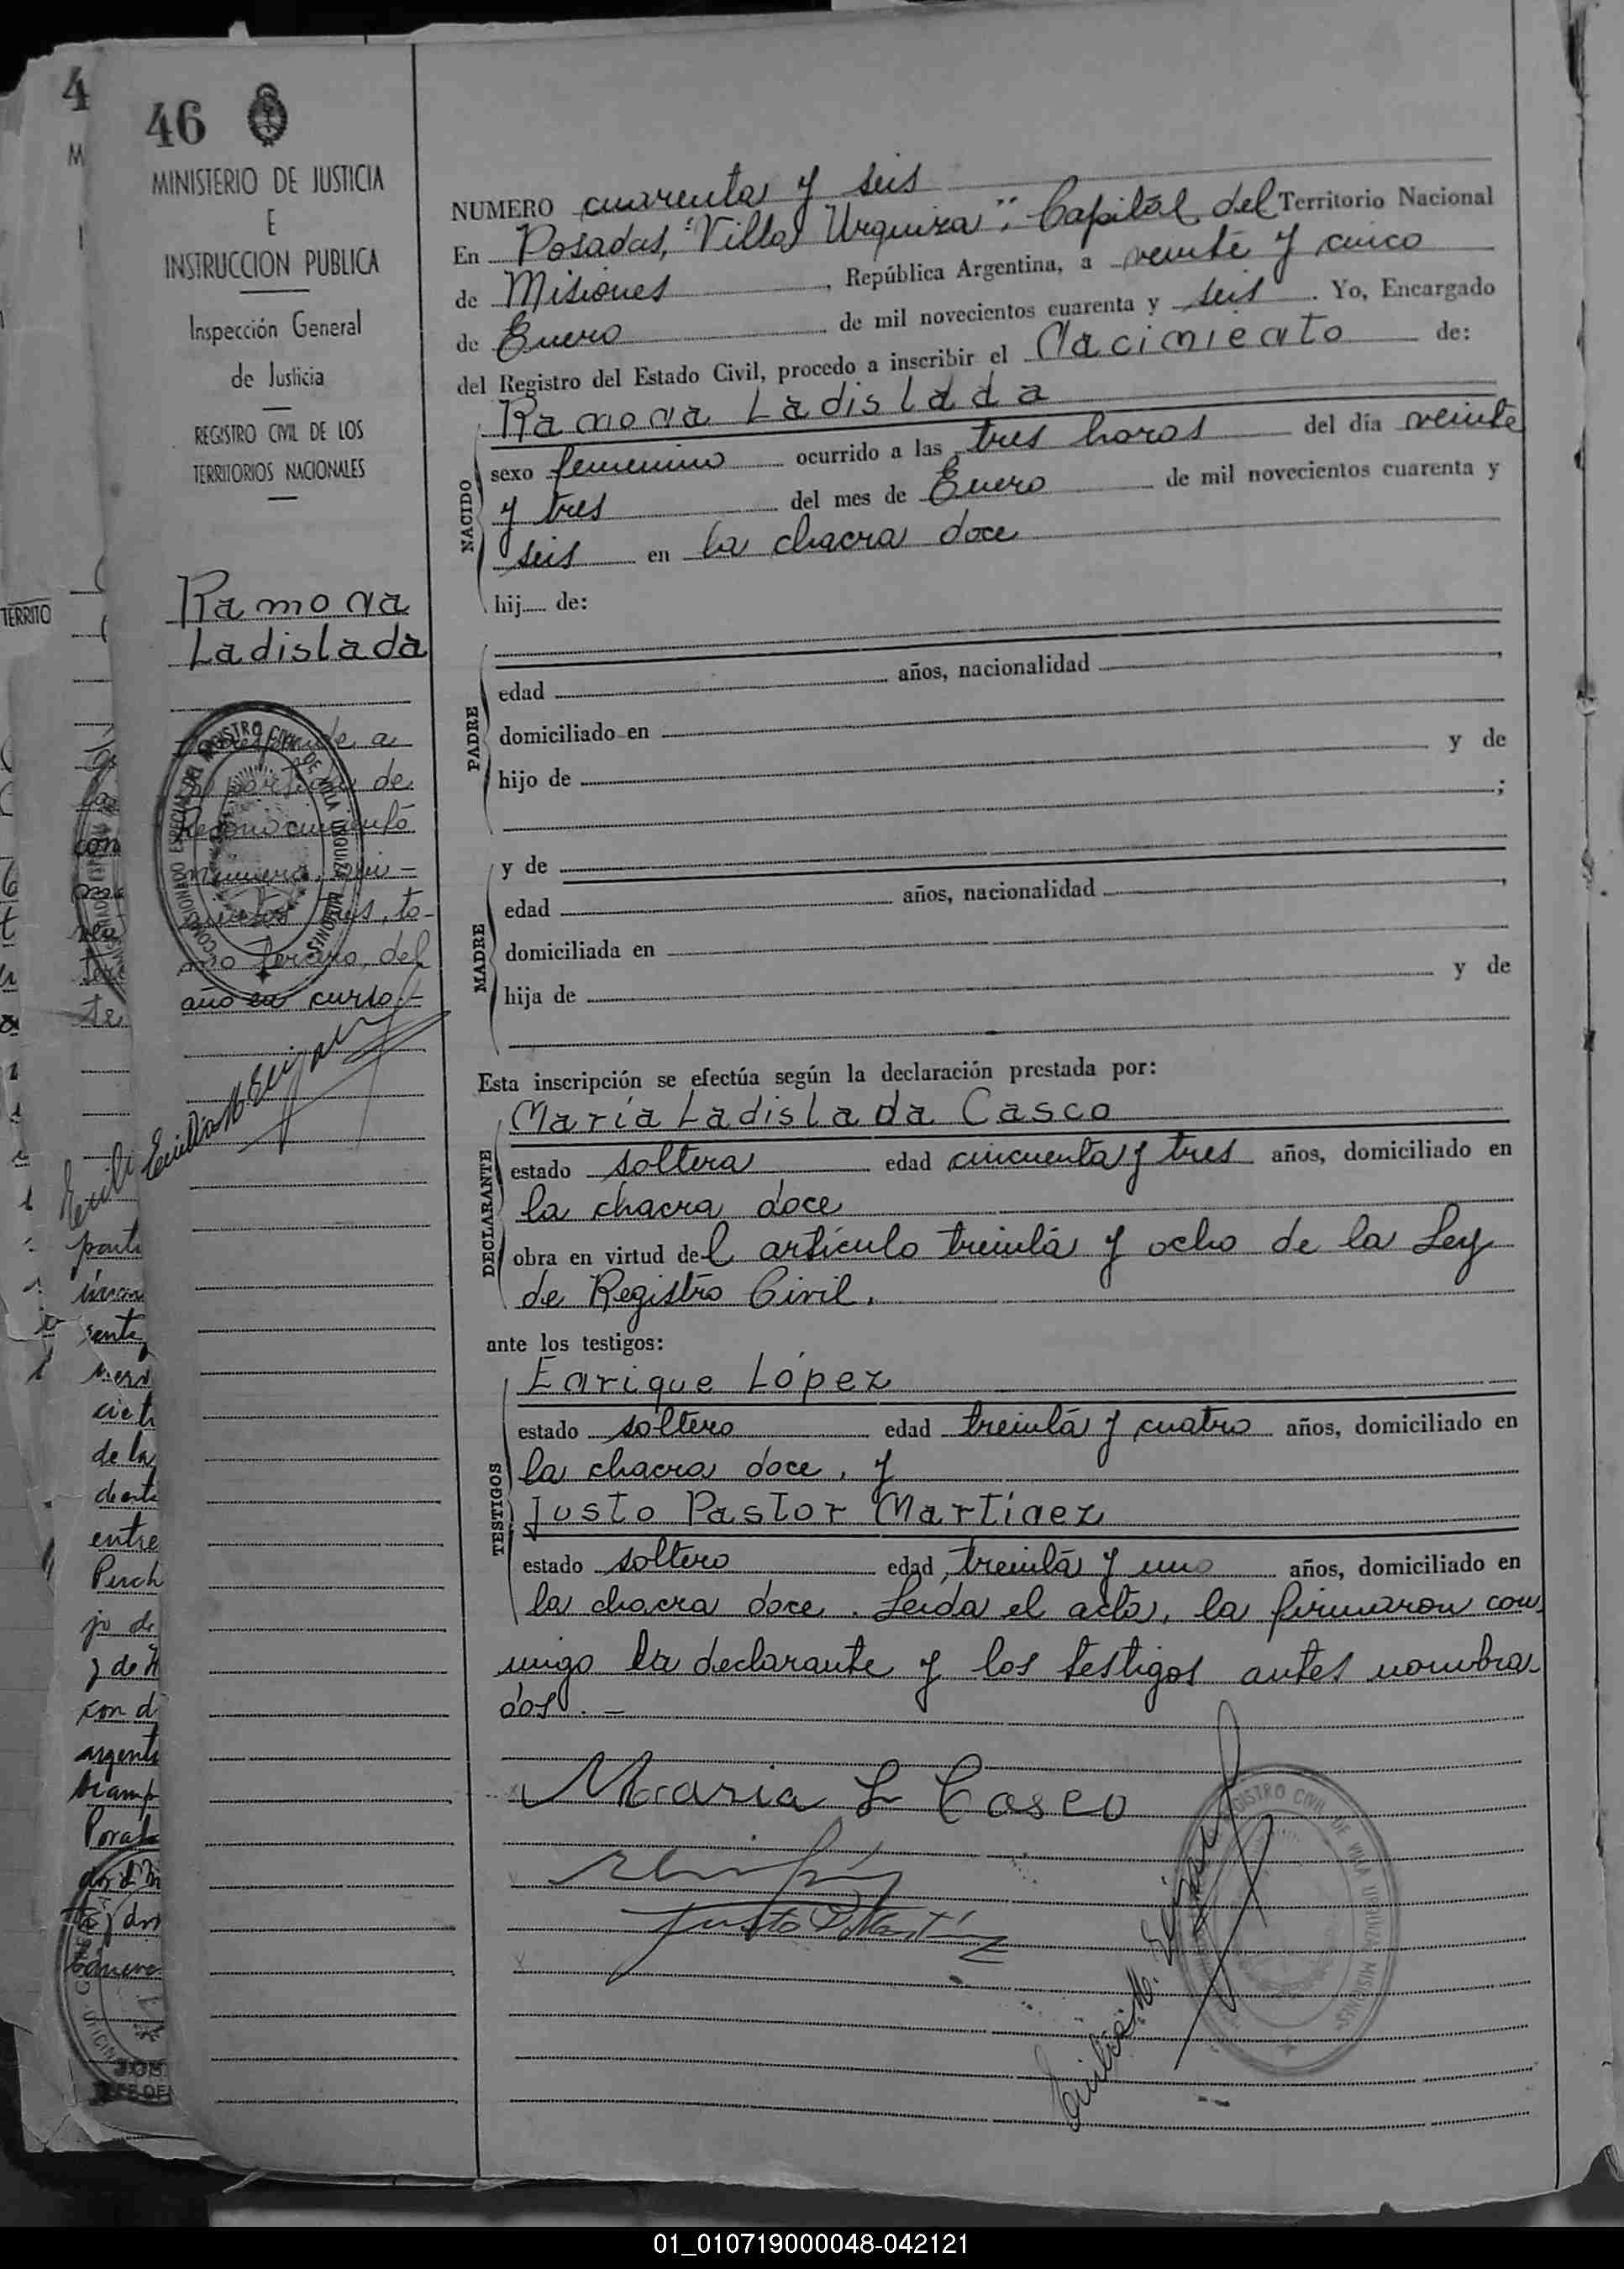 46
MINISTERIO DE JUSTICIA
E
INSTRUCCION PUBLICA
Inspección General
de Justicia
REGISTRO CIVIL DE LOS
TERRITORIOS NACIONALES
Ramona
Ladislada
Corresponde a
la partida de
Reconocimiento
número qui-
nientos tres, to-
mo tercero, del
año en curso.-
NUMERO cuarenta y seis
En Posadas, "Villa Urquiza", Capital del Territorio Nacional
de Misiones, República Argentina, a veinte y cinco
de Enero de mil novecientos cuarenta y seis. Yo, Encargado
del Registro del Estado Civil, procedo a inscribir el Nacimiento de:
Ramona Ladislada
NACIDO
sexo femenino ocurrido a las tres horas del día veinte
y tres del mes de Enero de mil novecientos cuarenta y
seis en la chacra doce
hij de:
PADRE
edad años, nacionalidad
domiciliado en
hijo de y de
;
MADRE
y de
edad años, nacionalidad
domiciliada en
hija de y de
Esta inscripción se efectúa según la declaración prestada por:
DECLARANTE
María Ladislada Casco
estado soltera edad cincuenta y tres años, domiciliado en
la chacra doce
obra en virtud del artículo treinta y ocho de la Ley
de Registro Civil.
ante los testigos:
TESTIGOS
Enrique López
estado soltero edad treinta y cuatro años, domiciliado en
la chacra doce, y
Justo Pastor Martínez
estado soltero edad treinta y uno años, domiciliado en
la chacra doce. Leida el acta, la firmaron con
migo la declarante y los testigos antes nombra-
dos.-
Maria L Casco
Justo P. Martínez
REGISTRO CIVIL DE VILLA URQUIZA MISIONES
01_010719000048-042121